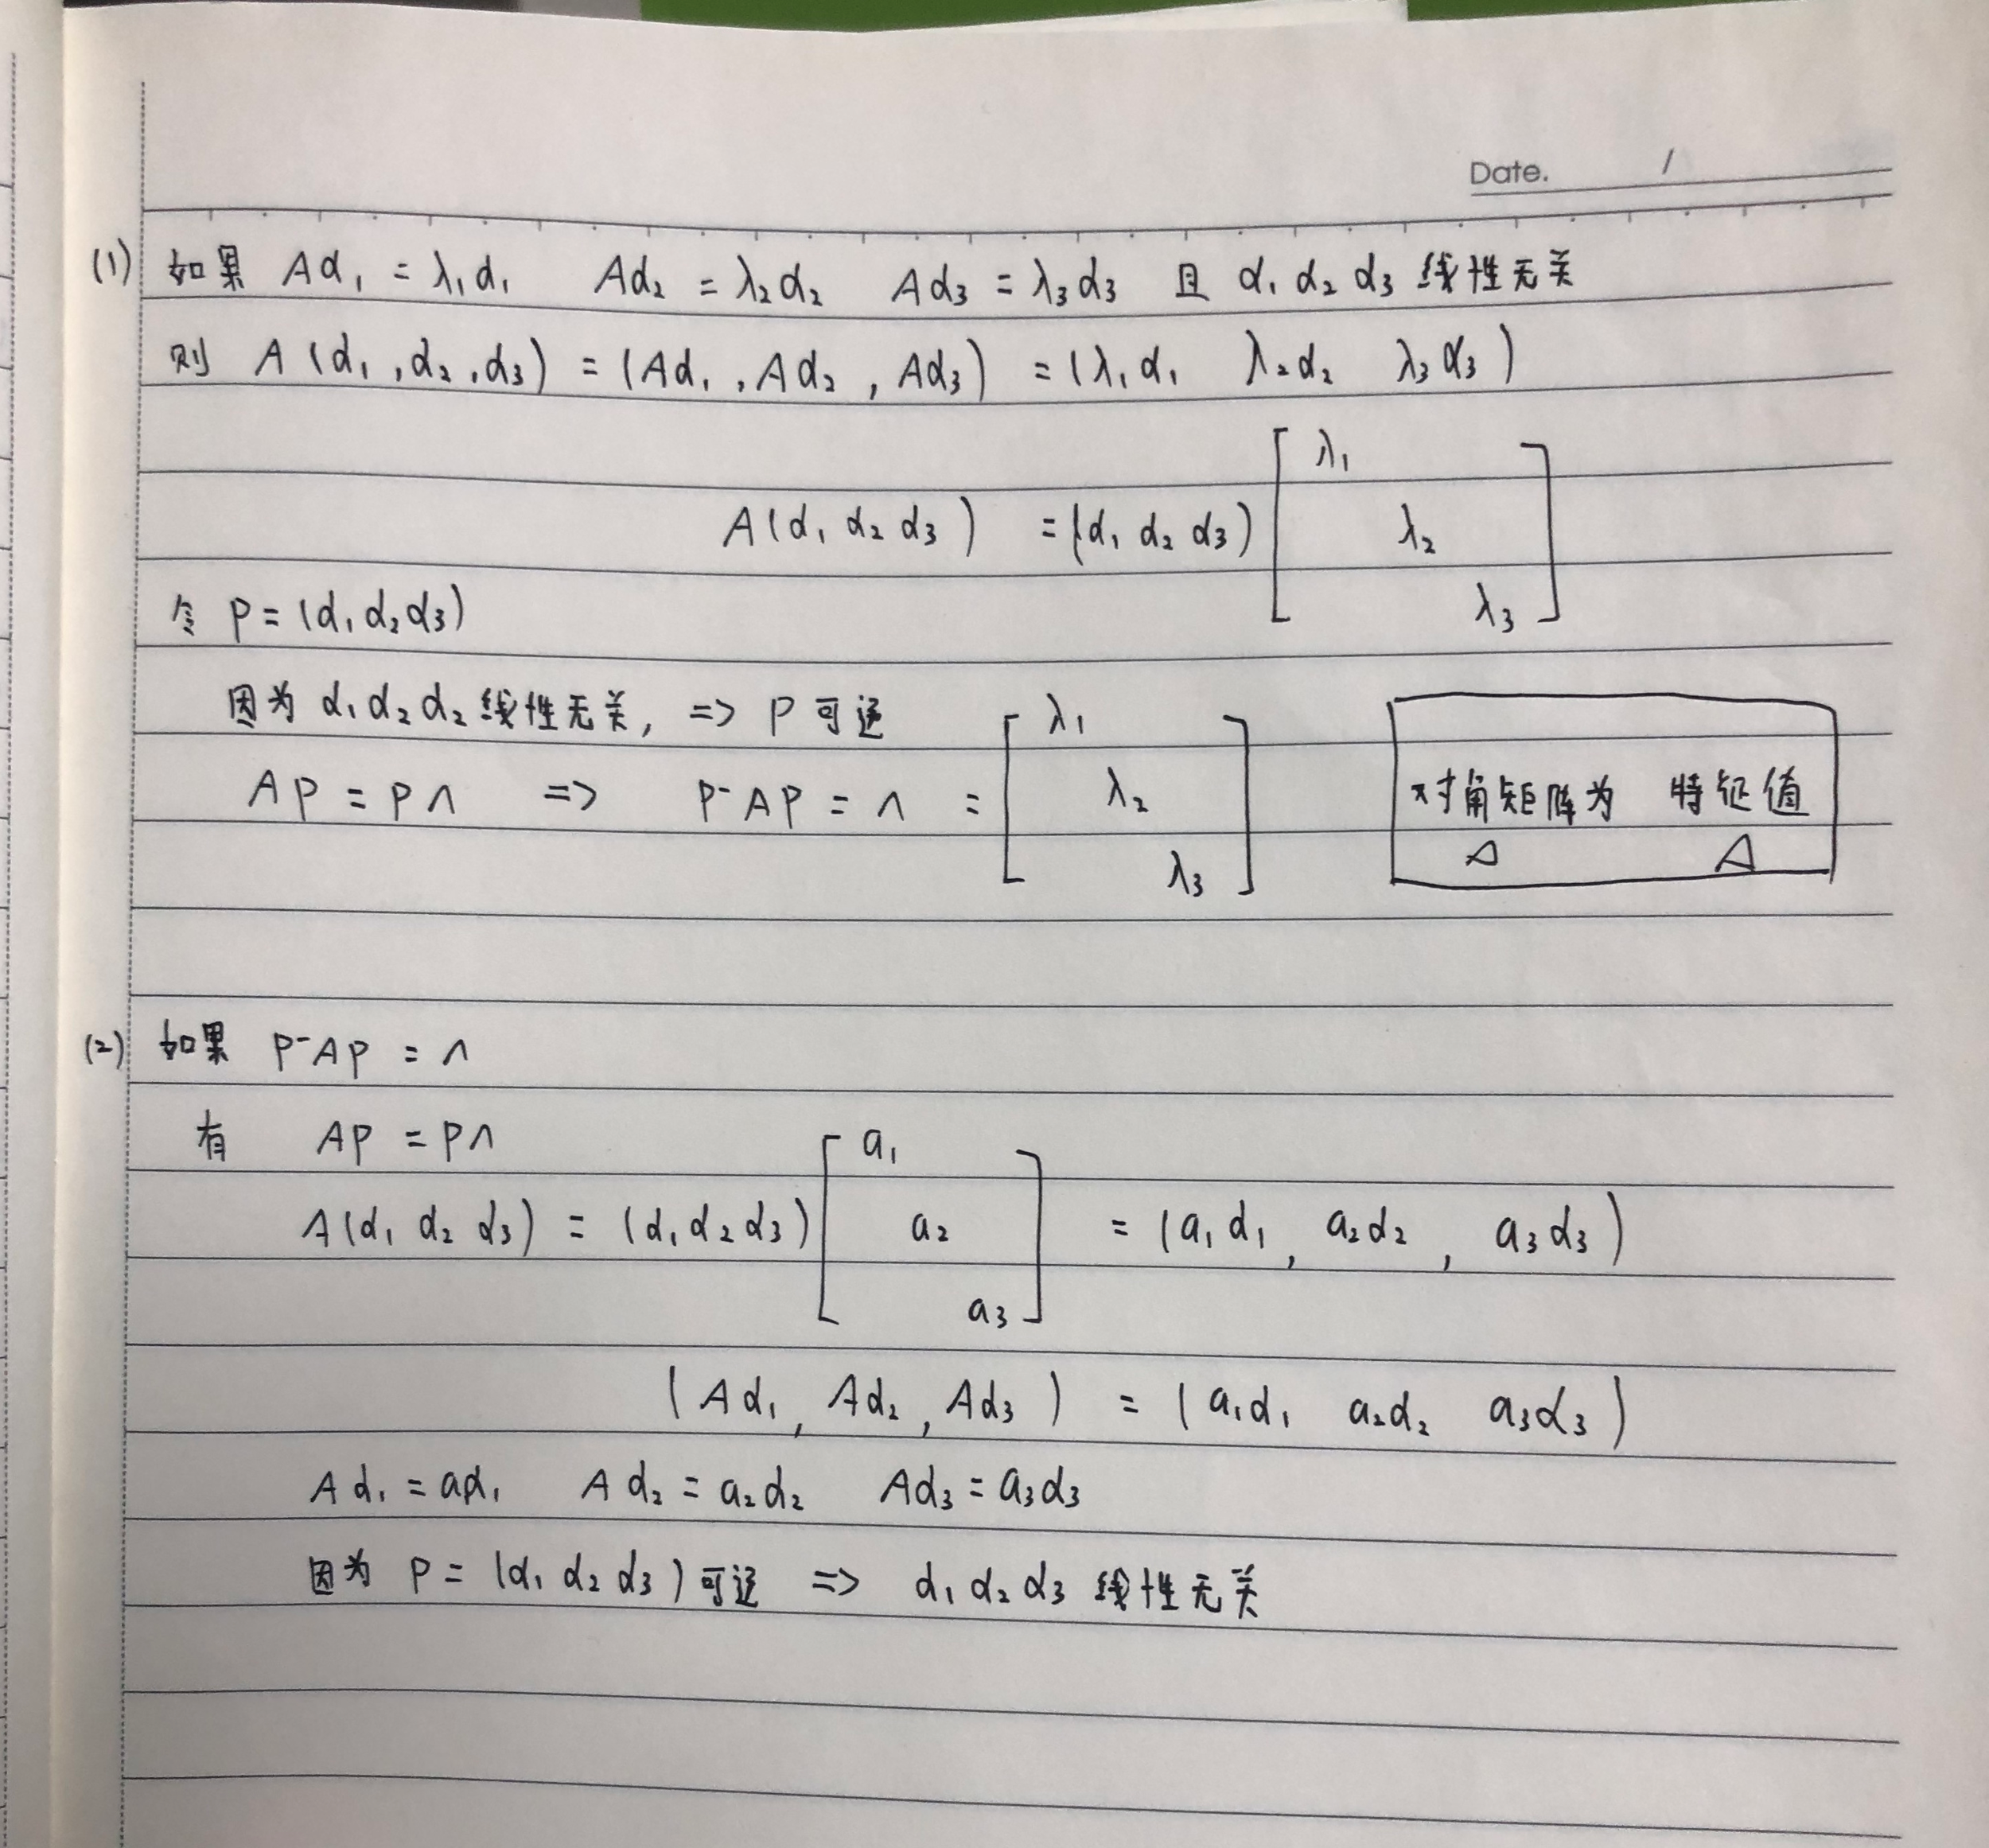 Date. /
(1) 如果 Aα₁ = λ₁α₁ Aα₂ = λ₂α₂ Aα₃ = λ₃α₃ 且 α₁ α₂ α₃ 线性无关
则 A(α₁,α₂,α₃) = (Aα₁,Aα₂,Aα₃) = (λ₁α₁ λ₂α₂ λ₃α₃)
λ₁
A(α₁ α₂ α₃) = (α₁ α₂ α₃) [ λ₂ ]
λ₃
令 P = (α₁α₂α₃)
因为 α₁α₂α₂线性无关, => P可逆
λ₁
AP = PΛ => P⁻AP = Λ = [ λ₂ ]
λ₃
对角矩阵为 特征值
Δ A
(2) 如果 P⁻AP = Λ
有 AP = PΛ
a₁
A(α₁ α₂ α₃) = (α₁α₂α₃) [ a₂ ] = (a₁α₁, a₂α₂, a₃α₃)
a₃
(Aα₁, Aα₂, Aα₃) = (a₁α₁ a₂α₂ a₃α₃)
Aα₁ = aα₁ Aα₂ = a₂α₂ Aα₃ = a₃α₃
因为 P = (α₁ α₂ α₃)可逆 => α₁α₂α₃ 线性无关